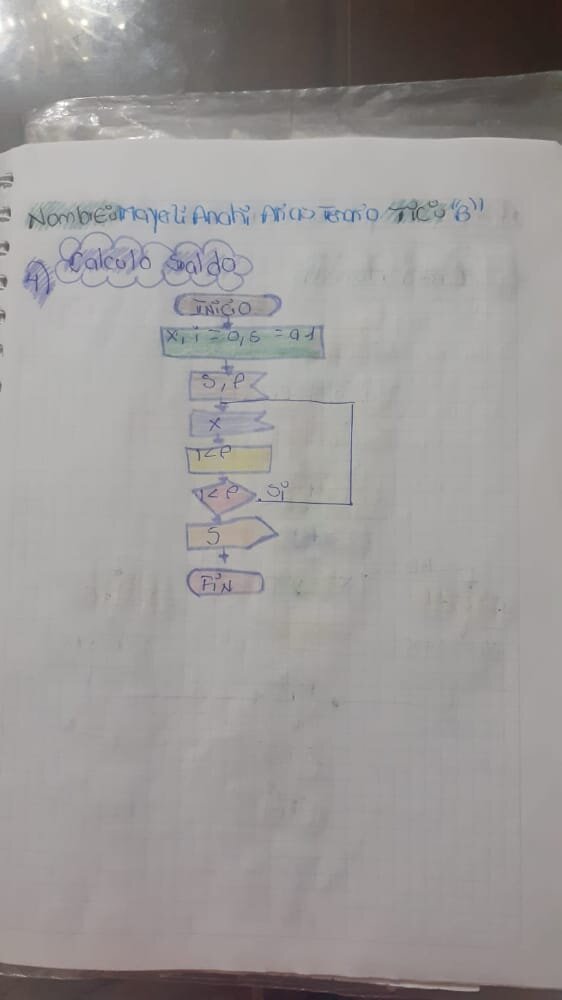 Nombre: Mayerli Anahi Arias Tenorio TICÚ "B"
4) Calculo Saldo
INICIO
x, i = 0, s = 0.1
S, P
x
I<P
I<P Si
S
FiN